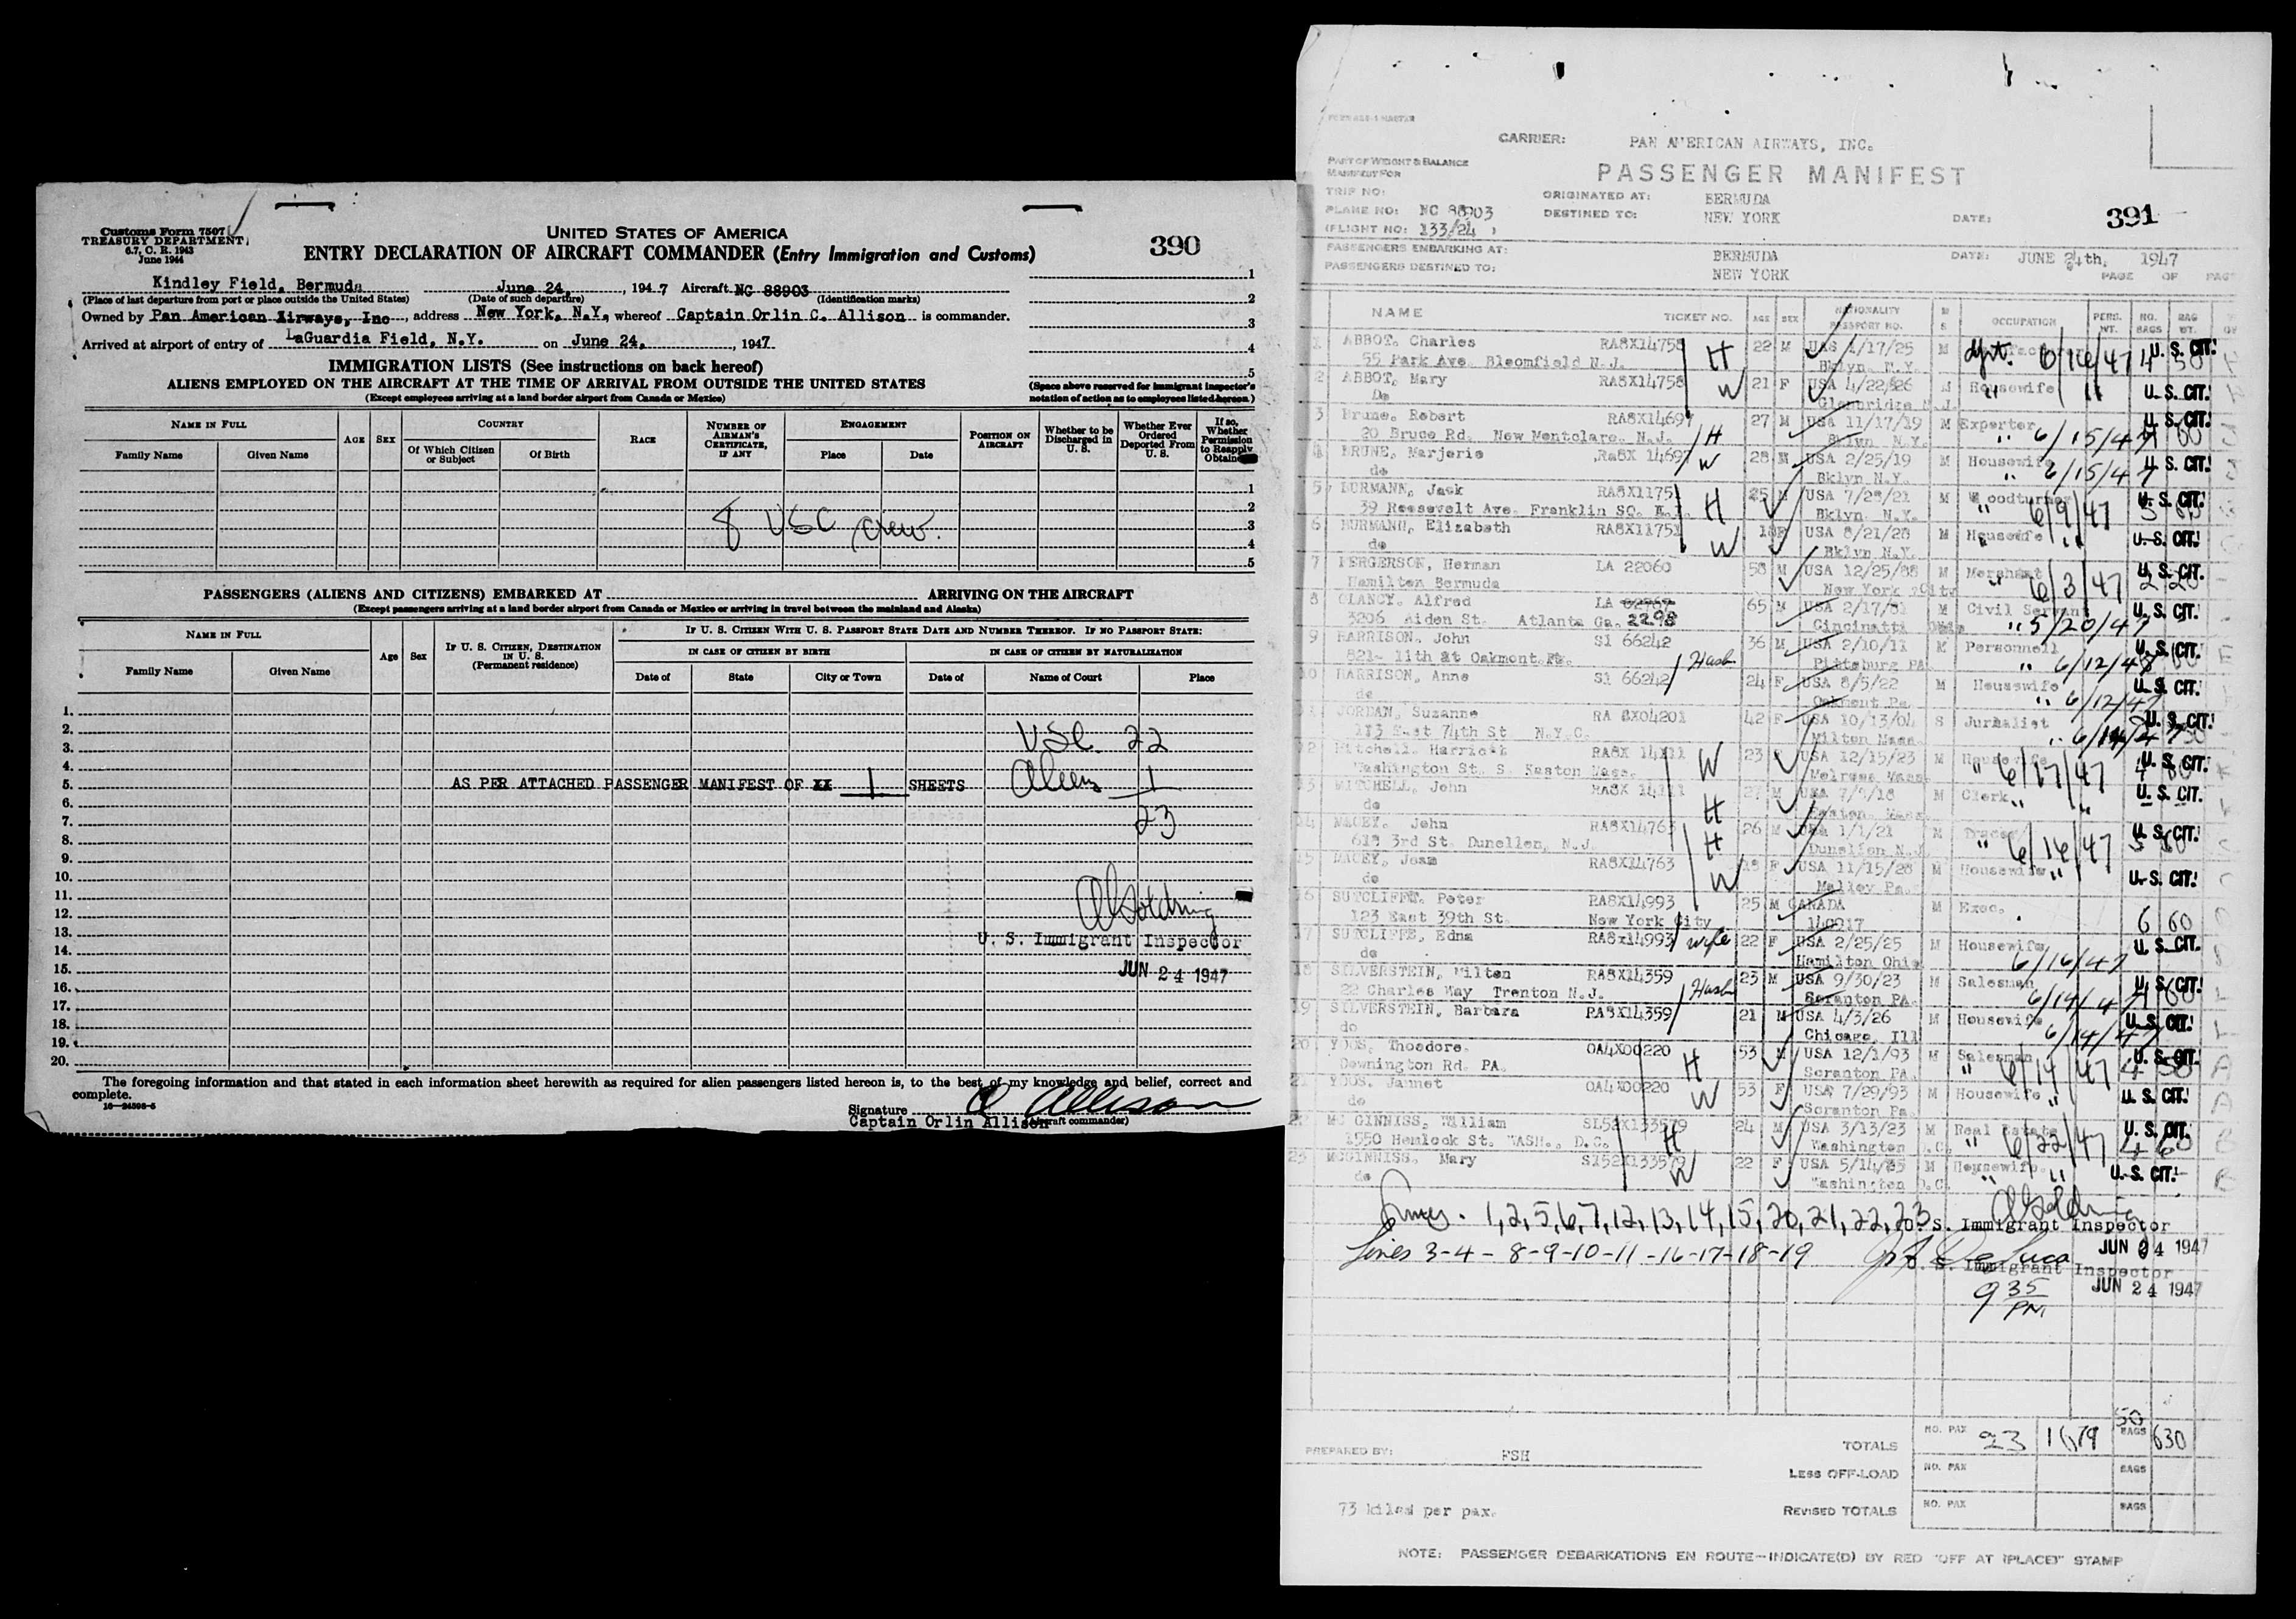 Customs Form 7507
TREASURY DEPARTMENT
6.7, C. R. 1943
June 1944
UNITED STATES OF AMERICA
ENTRY DECLARATION OF AIRCRAFT COMMANDER (Entry Immigration and Customs)
390
Kindley Field, Bermuda June 24, , 1947 Aircraft NC 88903
(Place of last departure from port or place outside the United States) (Date of such departure) (Identification marks)
Owned by Pan American Airways, Inc , address New York, N.Y. whereof Captain Orlin C. Allison is commander.
Arrived at airport of entry of LaGuardia Field, N.Y. on June 24, , 1947
1
2
3
4
5
IMMIGRATION LISTS (See instructions on back hereof)
ALIENS EMPLOYED ON THE AIRCRAFT AT THE TIME OF ARRIVAL FROM OUTSIDE THE UNITED STATES
(Except employees arriving at a land border airport from Canada or Mexico)
(Space above reserved for immigrant inspector's notation of action as to employees listed hereon.)
NAME IN FULL
Family Name
Given Name
AGE
SEX
COUNTRY
Of Which Citizen or Subject
Of Birth
RACE
NUMBER OF AIRMAN'S CERTIFICATE, IF ANY
ENGAGEMENT
Place
Date
POSITION ON AIRCRAFT
Whether to be Discharged in U. S.
Whether Ever Ordered Deported From U. S.
If so, Whether Permission to Reapply Obtained
1
2
3
4
5
8 USC crew.
PASSENGERS (ALIENS AND CITIZENS) EMBARKED AT ARRIVING ON THE AIRCRAFT
(Except passengers arriving at a land border airport from Canada or Mexico or arriving in travel between the mainland and Alaska)
NAME IN FULL
Family Name
Given Name
Age
Sex
IF U. S. CITIZEN, DESTINATION IN U. S. (Permanent residence)
IF U. S. CITIZEN WITH U. S. PASSPORT STATE DATE AND NUMBER THEREOF. IF NO PASSPORT STATE:
IN CASE OF CITIZEN BY BIRTH
IN CASE OF CITIZEN BY NATURALIZATION
Date of
State
City or Town
Date of
Name of Court
Place
1.
2. USC 22
3.
4.
5. AS PER ATTACHED PASSENGER MANIFEST OF XX 1 SHEETS Alien 1
6.
7. 23
8.
9.
10.
11.
12.
13. U. S. Immigrant Inspector
14.
15. JUN 24 1947
16.
17.
18.
19.
20.
The foregoing information and that stated in each information sheet herewith as required for alien passengers listed hereon is, to the best of my knowledge and belief, correct and complete.
Signature O Allison
Captain Orlin Allison (Aircraft commander)
CARRIER: PAN AMERICAN AIRWAYS, INC.
PART OF WEIGHT & BALANCE
MANIFEST FOR
PASSENGER MANIFEST
TRIP NO: ORIGINATED AT: BERMUDA
PLANE NO: NC 88903 DESTINED TO: NEW YORK DATE: 391
(FLIGHT NO: 133/24 )
PASSENGERS EMBARKING AT: BERMUDA DATE: JUNE 24th, 1947
PASSENGERS DESTINED TO: NEW YORK PAGE OF
NAME TICKET NO. AGE SEX NATIONALITY PASSPORT NO. M S OCCUPATION PERS. WT. NO. BAGS BAG WT.
1 ABBOT, Charles RA8X14758 H 22 M USA 1/17/25 M 6/16/47 U. S. CIT.
55 Park Ave. Bloomfield N.J. Bklyn. N.Y.
2 ABBOT, Mary RA8X14758 W 21 F USA 4/22/26 M Housewife " U. S. CIT.
Do Glenbridge N.J.
3 Brune, Robert RA8X14697 H 27 M USA 11/17/19 M Exporter 6/15/47 U. S. CIT.
20 Bruce Rd. New Montclare. N.J. Bklyn. N.Y.
4 BRUNE, Marjorie RA8X 14697 W 28 M USA 2/25/19 M Housewife 6/15/47 U. S. CIT.
do Bklyn N.Y.
5 BURMANN, Jack RA8X11751 H 25 M USA 7/28/21 M Woodturner 6/9/47 U. S. CIT.
39 Roosevelt Ave. Franklin SQ. Bklyn. N.Y.
6 BURMANN, Elizabeth RA8X11751 W 18 F USA 8/21/28 M Housewife " U. S. CIT.
do Bklyn N.Y.
7 FERGERSON, Herman LA 22060 58 M USA 12/25/88 M Merchant 6/3/47 U. S. CIT.
Hamilton Bermuda New York City
8 CLANCY, Alfred LA 65 M USA 2/17/81 M Civil Servant " 5/20/47 U. S. CIT.
3206 Aiden St. Atlanta Ga. 2298 Cincinatti
9 HARRISON, John S1 66242 Husb 36 M USA 2/10/11 M Personnell " 6/12/47 U. S. CIT.
821- 11th St Oakmont Pa. Pittsburg PA.
10 HARRISON, Anne S1 66242 24 F USA 8/5/22 M Housewife " 6/12/47 U. S. CIT.
do Oakmont Pa
11 JORDAN, Suzanne RA 8X04201 42 F USA 10/13/04 S Jurnalist U. S. CIT.
113 East 74th St N.Y.C. Milton Mass
12 Mitchell. Harriet RA8X 14111 W 23 USA 12/15/23 M Housewife " 6/17/47 U. S. CIT.
Washington St. S. Easton Mass. Melrose Mass.
13 MITCHELL, John RA8X 14111 H 27 M USA 7/9/18 M Clerk " " U. S. CIT.
do Easton Mass
14 MACEY, John RA8X14763 H 26 M USA 1/1/21 M " 6/16/47 U. S. CIT.
618 3rd St. Dunellen, N.J. Dunellen N.J.
15 MACEY, Jean RA8X14763 W 18 F USA 11/15/28 M Housewife " U. S. CIT.
do Malloy Pa.
16 SUTCLIFFE, Peter RA8X14993 25 M CANADA M Exec. 6 60
123 East 39th St. New York City 140917
17 SUTCLIFFE, Edna RA8x14993 wife 22 F USA 2/25/25 M Housewife 6/16/47 U. S. CIT.
do Hamilton Ohio
18 SILVERSTEIN, Milton RA8X14359 Husb 23 M USA 9/30/23 M Salesman 6/14/47 U. S. CIT.
22 Charles Way Trenton N.J. Scranton PA.
19 SILVERSTEIN, Barbara RA8X14359 21 M USA 4/3/26 M Housewife 6/14/47 U. S. CIT.
do Chicago, Ill
20 YOOS, Theodore OA4X00220 H 53 M USA 12/1/93 M Salesman " 6/14/47 U. S. CIT.
Downington Rd. PA. Scranton PA.
21 YOOS, Jannet OA4X00220 W 53 F USA 7/29/93 M Housewife " U. S. CIT.
do Scranton Pa.
22 MC GINNISS, William S152X133579 H 24 M USA 3/13/23 M Real Estate " 6/22/47 U. S. CIT.
1550 Hemlock St. WASH., D.C. Washington D.C.
23 MCGINNISS, Mary S152X133579 W 22 F USA 5/14/25 M Housewife. " U. S. CIT.
do Washington D.C.
Lines. 1,2,5,6,7,12,13,14,15,20,21,22,23 U. S. Immigrant Inspector
Lines 3-4-8-9-10-11-16-17-18-19 JUN 24 1947
U. S. Immigrant Inspector
9 35 PM JUN 24 1947
PREPARED BY: FSH TOTALS NO. PAX 23 1679 50 BAGS 630
LESS OFF-LOAD NO. PAX BAGS
73 kilos per pax. REVISED TOTALS NO. PAX BAGS
NOTE: PASSENGER DEBARKATIONS EN ROUTE—INDICATE(D) BY RED "OFF AT (PLACE)" STAMP